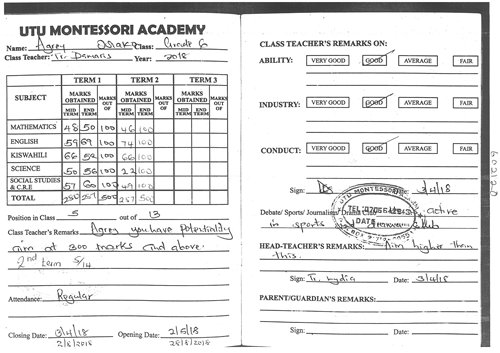 UTU MONTESSORI ACADEMY
Name: Agrey Class: Grade 6
Class Teacher: Tr. Damaris Year: 2018
TERM 1 TERM 2 TERM 3
SUBJECT MARKS OBTAINED MARKS OUT OF MARKS OBTAINED MARKS OUT OF MARKS OBTAINED MARKS OUT OF
MID TERM END TERM MID TERM END TERM MID TERM END TERM
MATHEMATICS 48 50 100 46 100
ENGLISH 59 69 100 74 100
KISWAHILI 66 52 100 66 100
SCIENCE 50 56 100 22 100
SOCIAL STUDIES & C.R.E 57 60 100 49 100
TOTAL 500 257 500
Position in Class 5 out of 13
Class Teacher's Remarks Agrey you have potentiality
aim at 300 marks and above.
2nd term 5/14
Attendance: Regular
Closing Date: 13/4/18 Opening Date: 2/5/18
2/8/2018 28/8/2018
CLASS TEACHER'S REMARKS ON:
ABILITY: VERY GOOD GOOD AVERAGE FAIR
INDUSTRY: VERY GOOD GOOD AVERAGE FAIR
CONDUCT: VERY GOOD GOOD AVERAGE FAIR
Sign: 13/4/18
UTU MONTESSORI
DATE
Debate/ Sports/ Journalism/ Drama Club active
in sports club
HEAD-TEACHER'S REMARKS: Aim higher than
this.
Sign: Tr. Lydia Date: 13/4/18
PARENT/GUARDIAN'S REMARKS:
Sign: Date: